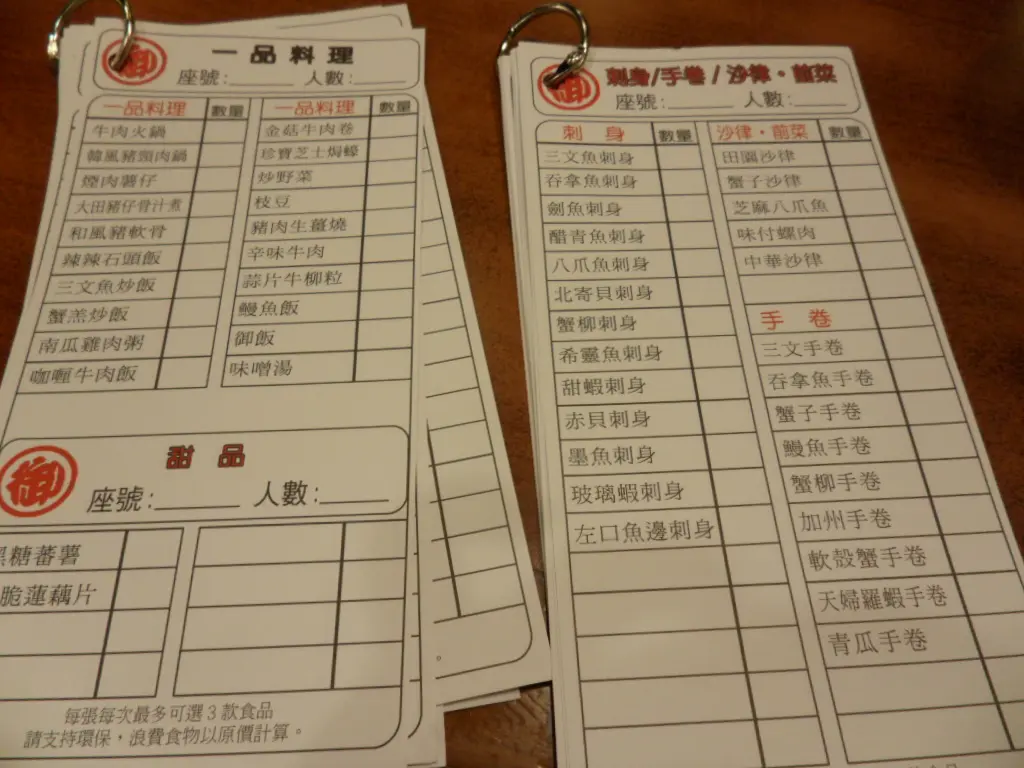 御
一品料理
座號：______ 人數：______
一品料理 數量 一品料理 數量
牛肉火鍋 金菇牛肉卷
韓風豬頸肉鍋 珍寶芝士焗蠔
煙肉薯仔 炒野菜
大田豬仔骨汁煮 枝豆
和風豬軟骨 豬肉生薑燒
辣辣石頭飯 辛味牛肉
三文魚炒飯 蒜片牛柳粒
蟹羔炒飯 鰻魚飯
南瓜雞肉粥 御飯
咖喱牛肉飯 味噌湯
御
甜品
座號：______ 人數：______
黑糖蕃薯
脆蓮藕片
每張每次最多可選3款食品
請支持環保，浪費食物以原價計算。
御
刺身/手卷/沙律·前菜
座號：______ 人數：______
刺身 數量 沙律·前菜 數量
三文魚刺身 田園沙律
吞拿魚刺身 蟹子沙律
劍魚刺身 芝麻八爪魚
醋青魚刺身 味付螺肉
八爪魚刺身 中華沙律
北寄貝刺身
蟹柳刺身 手卷
希靈魚刺身 三文手卷
甜蝦刺身 吞拿魚手卷
赤貝刺身 蟹子手卷
墨魚刺身 鰻魚手卷
玻璃蝦刺身 蟹柳手卷
左口魚邊刺身 加州手卷
軟殼蟹手卷
天婦羅蝦手卷
青瓜手卷